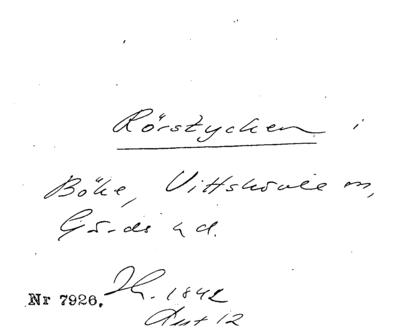 Rörstycken i
Böke, Vittskövle m,
Gärds hd.
Nr 7926. 1842
12